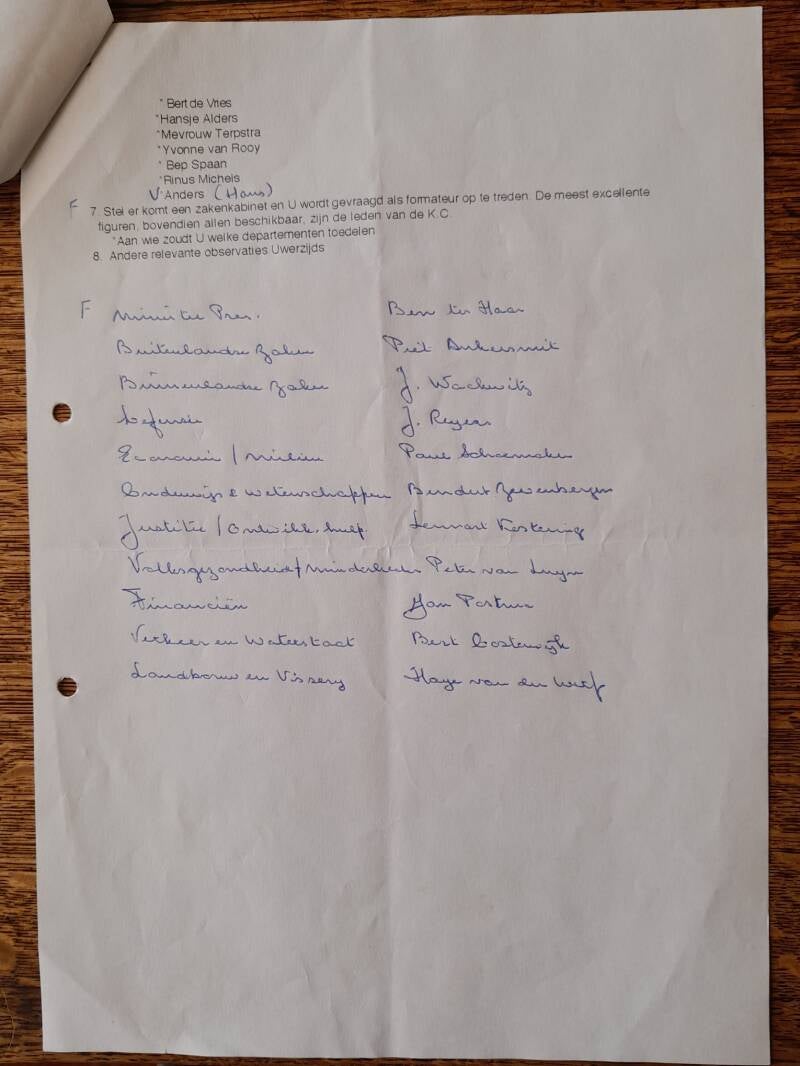 * Bert de Vries
*Hansje Alders
*Mevrouw Terpstra
*Yvonne van Rooy
* Bep Spaan
*Rinus Michels
V *Anders (Hans)
F 7. Stel er komt een zakenkabinet en U wordt gevraagd als formateur op te treden. De meest excellente
figuren, bovendien allen beschikbaar, zijn de leden van de K.C.
*Aan wie zoudt U welke departementen toedelen
8. Andere relevante observaties Uwerzijds
F Minister Pres. Ben ter Haar
Buitenlandse Zaken Piet Ankersmit
Binnenlandse Zaken J. Wackwitz
Defensie J. Reyers
Economie / Milieu Paul Schoemaker
Onderwijs & wetenschappen Bendert Zevenbergen
Justitie / Ontwikk. hulp. Lennart Vestering
Volksgezondheid / minderheden Peter van Luyn
Financiën Jan Postma
Verkeer en Waterstaat Bert Oosterwijk
Landbouw en Visserij Haye van der Werf